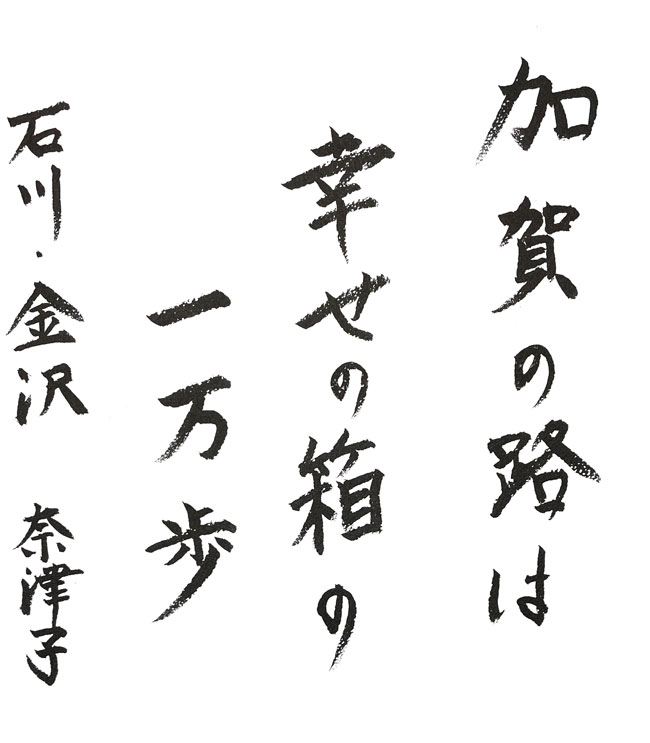 加賀の路は
幸せの箱の
一万歩
石川・金沢 奈津子